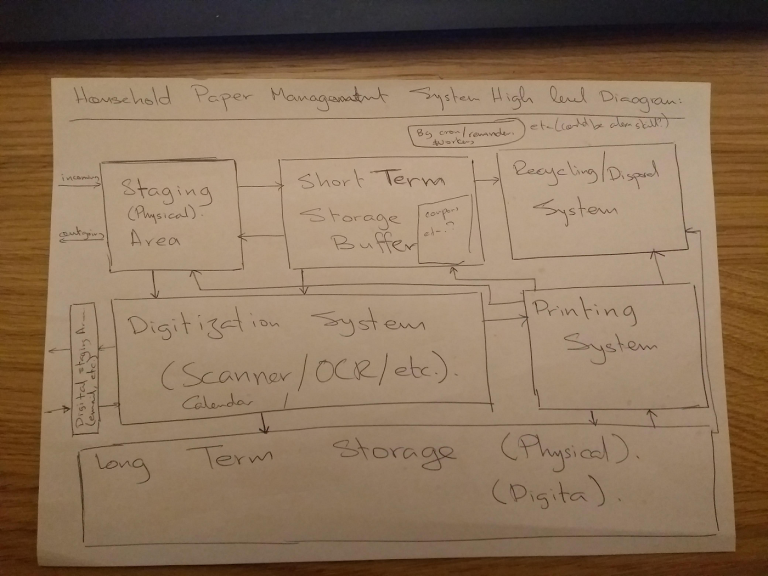 Household Paper Management System High level Diagram:
By cron/reminders
workers
etc (could be
incoming
Staging
(Physical).
Area
outgoing
Short Term
Storage
Buffer
etc..
Recycling/Disposal
System
Digital staging
(email, etc)
Digitization System
(Scanner/OCR/etc.).
Calendar /
Printing
System
Long Term Storage (Physical).
(Digital).